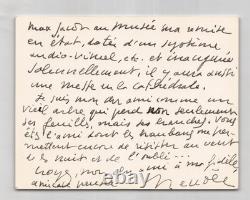 max jacob au musée ma retraite
en état, dotée d'un système
audio-visuel, etc. et inaugurée
solennellement, il y aura aussi
une messe en la cathédrale.
Je suis mon cher ami comme un
vieil arbre qui perd non seulement
ses feuilles, mais ses branches. Vous
êtes l'ami dont les flambeaux me per-
mettent encore de résister au vent
et la nuit et de l'oubli...
croyez, mon cher ami à ma fidèle
amitié